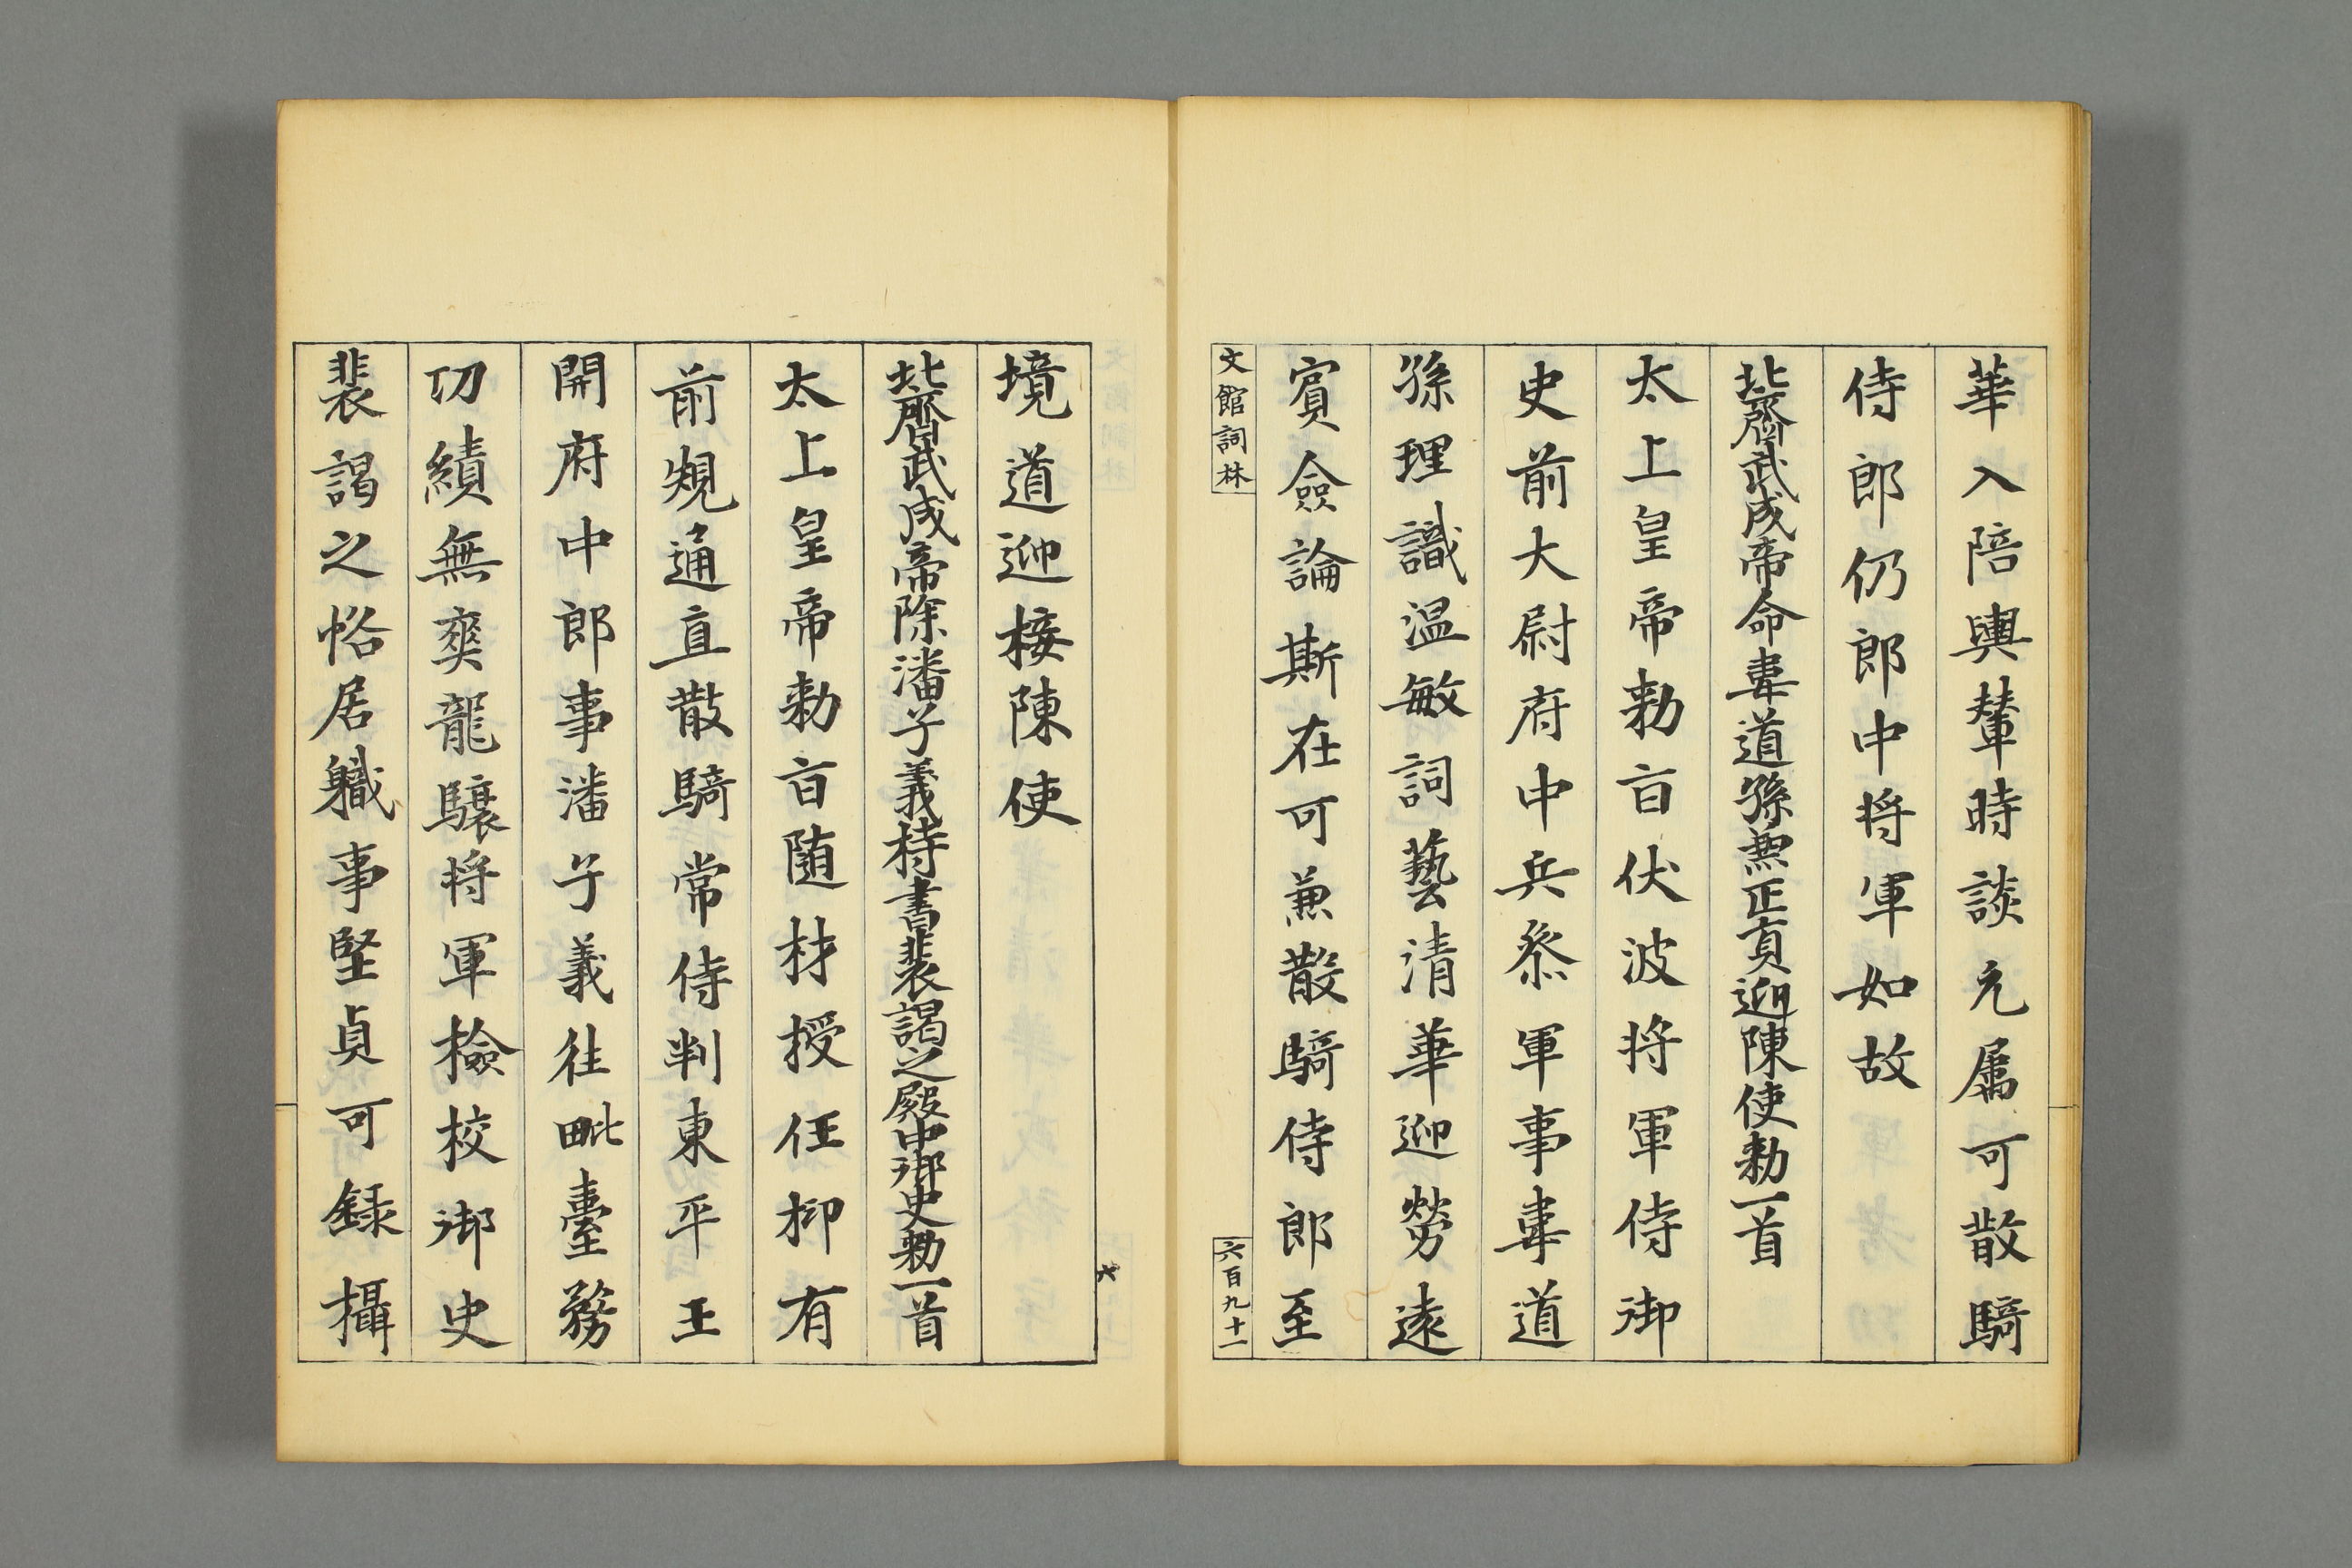 華入陪輿輦時談允属可散騎
侍郎仍郎中将軍如故
北齊武成帝命韋道孫兼正員迎陳使勅一首
太上皇帝勅旨伏波将軍侍御
史前大尉府中兵叅軍事韋道
孫理識温敏詞藝清華迎勞遠
賔僉論斯在可兼散騎侍郎至
文館詞林
六百九十一
境道迎接陳使
北齊武成帝除潘子義持書裴謁之殿中御史勅一首
太上皇帝勅旨随材授任抑有
前䂓通直散騎常侍判東平王
開府中郎事潘子義徃毗臺務
功績無爽龍驤将軍檢校御史
裴謁之恪居軄事堅貞可録攝